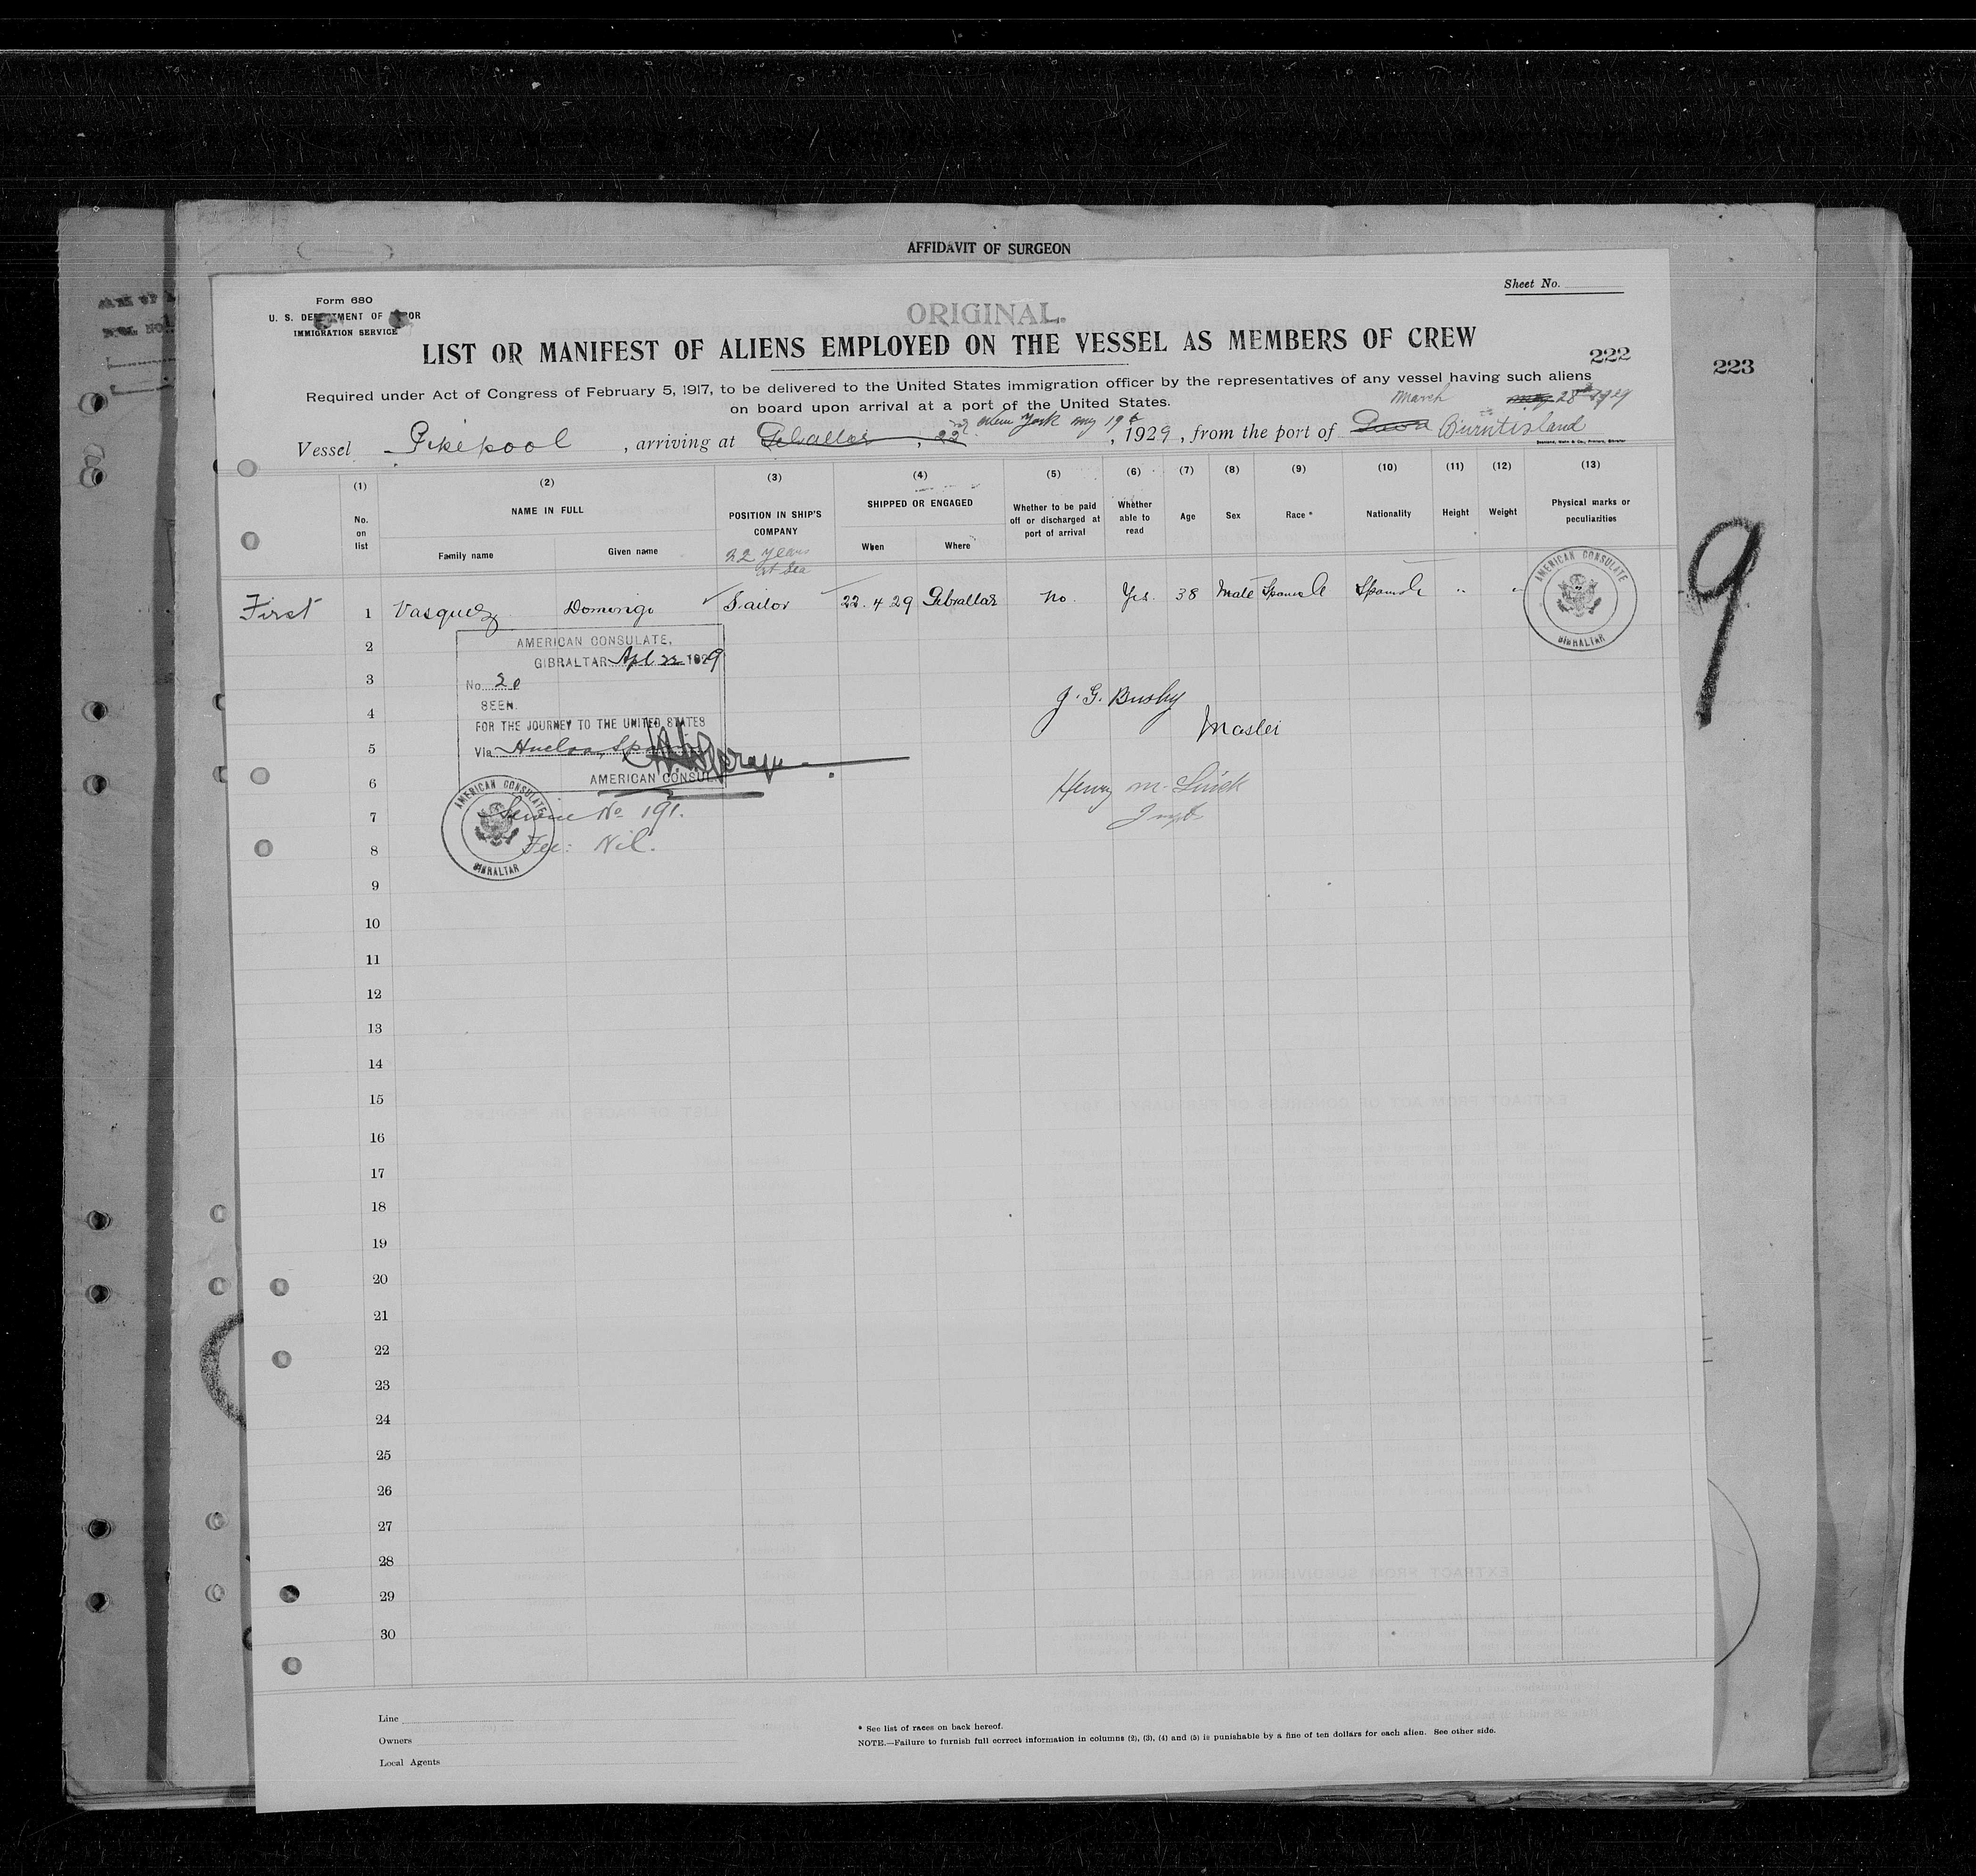 AFFIDAVIT OF SURGEON
Sheet No.
Form 680
U. S. DEPARTMENT OF LABOR
IMMIGRATION SERVICE
ORIGINAL.
LIST OR MANIFEST OF ALIENS EMPLOYED ON THE VESSEL AS MEMBERS OF CREW
222
223
Required under Act of Congress of February 5, 1917, to be delivered to the United States immigration officer by the representatives of any vessel having such aliens
on board upon arrival at a port of the United States.
March 28th 1929
New York May 19th
Vessel Pikepool , arriving at Gibraltar , 22nd , 1929 , from the port of Burntisland
(1) (2) (3) (4) (5) (6) (7) (8) (9) (10) (11) (12) (13)
No. on list
NAME IN FULL
Family name
Given name
POSITION IN SHIP'S COMPANY
22 years at sea
SHIPPED OR ENGAGED
When
Where
Whether to be paid off or discharged at port of arrival
Whether able to read
Age
Sex
Race *
Nationality
Height
Weight
Physical marks or peculiarities
First 1 Vasquez Domingo Sailor 22.4.29 Gibraltar No. Yes. 38 Male Spanish Spanish " "
AMERICAN CONSULATE
GIBRALTAR
AMERICAN CONSULATE,
GIBRALTAR Apl 22 1929
No. 20
SEEN.
FOR THE JOURNEY TO THE UNITED STATES
Via Huelva, Spain
AMERICAN CONSUL.
AMERICAN CONSULATE
GIBRALTAR
Service No 191.
Fee: Nil.
J. G. Busby
Master
Henry M.
9
2
3
4
5
6
7
8
9
10
11
12
13
14
15
16
17
18
19
20
21
22
23
24
25
26
27
28
29
30
Line
Owners
Local Agents
* See list of races on back hereof.
NOTE.—Failure to furnish full correct information in columns (2), (3), (4) and (5) is punishable by a fine of ten dollars for each alien. See other side.